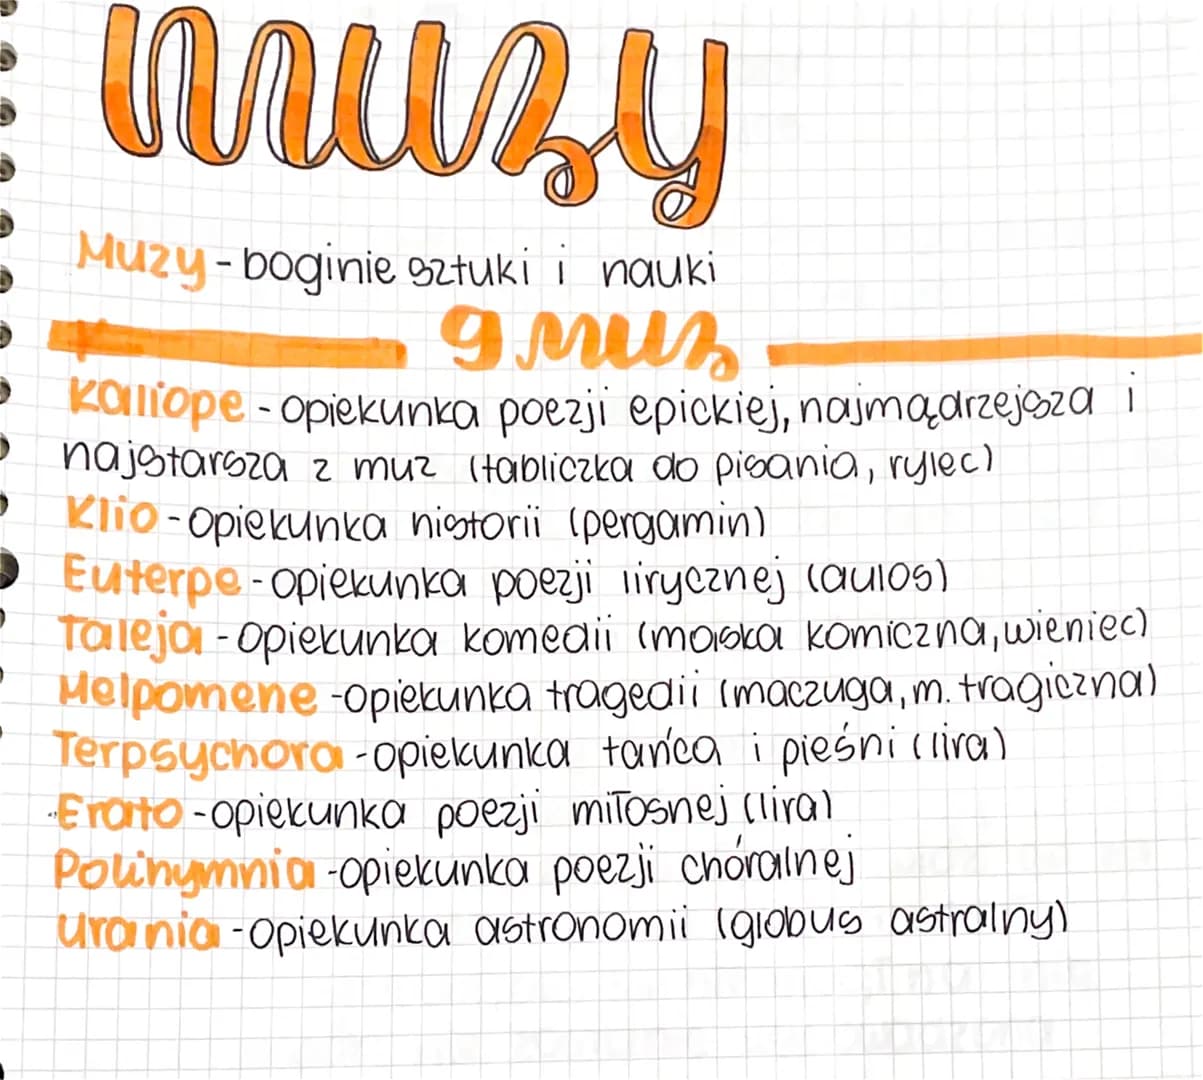 muzy
Muzy - boginie sztuki i nauki
9 muz
Kaliope - opiekunka poezji epickiej, najmądrzejsza i
najstarsza z muz (tabliczka do pisania, rylec)
Klio - opiekunka historii (pergamin)
Euterpe - opiekunka poezji lirycznej (aulos)
Taleja - opiekunka komedii (maska komiczna, wieniec)
Melpomene - opiekunka tragedii (maczuga, m. tragiczna)
Terpsychora - opiekunka tańca i pieśni (lira)
Erato - opiekunka poezji miłosnej (lira)
Polihymnia - opiekunka poezji chóralnej
Urania - opiekunka astronomii (globus astralny)